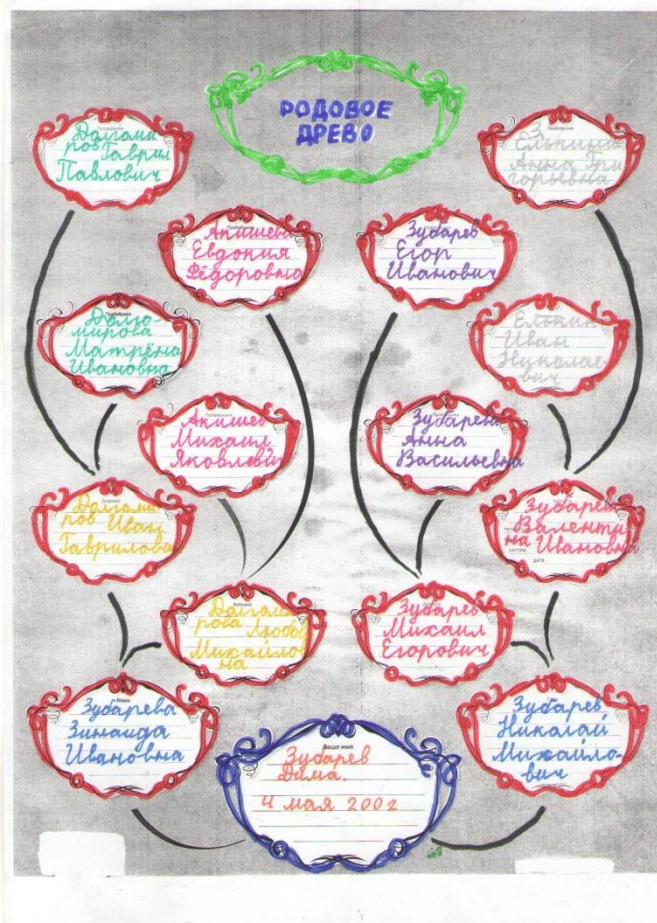 РОДОВОЕ
ДРЕВО
Долгоми
ров Гаврил
Павлович
Елькина
Анна Гри
горьевна
Акишева
Евдокия
Фёдоровна
Зубарев
Егор
Иванович
Долго-
мирова
Матрёна
Ивановна
Елькин
Иван
Николае-
вич
Акишев
Михаил
Яковлевич
Зубарева
Анна
Васильевна
Долгоми
ров Иван
Гаврилович
Зубарева
Валенти
на Ивановна
ДАТА
Бабушка
Долгоми
рова Любовь
Михайлов
на
Зубарев
Михаил
Егорович
Мама
Зубарева
Зинаида
Ивановна
Зубарев
Николай
Михайло-
вич
Ваше имя
Зубарев
Дима.
4 мая 2002